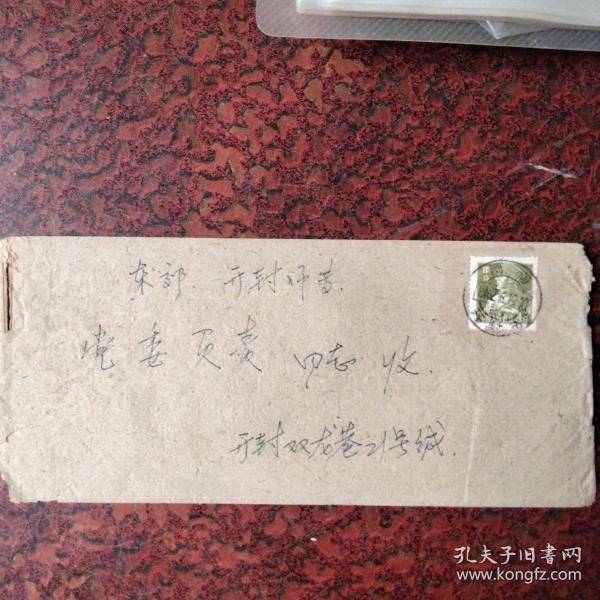 东郊 开封师专
党委负责同志收
开封双龙巷21号缄
孔夫子旧书网
www.kongfz.com